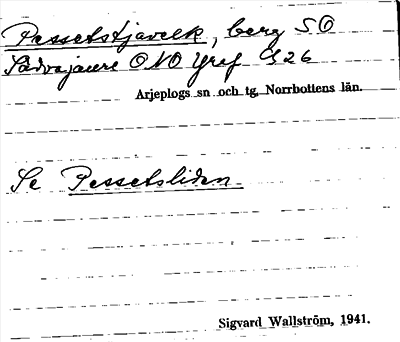 Pessetstjavelk, berg SO
Sädvajaure ONO Yraf G 26
Arjeplogs sn och tg, Norrbottens län.
Se Pessetsliden
Sigvard Wallström, 1941.